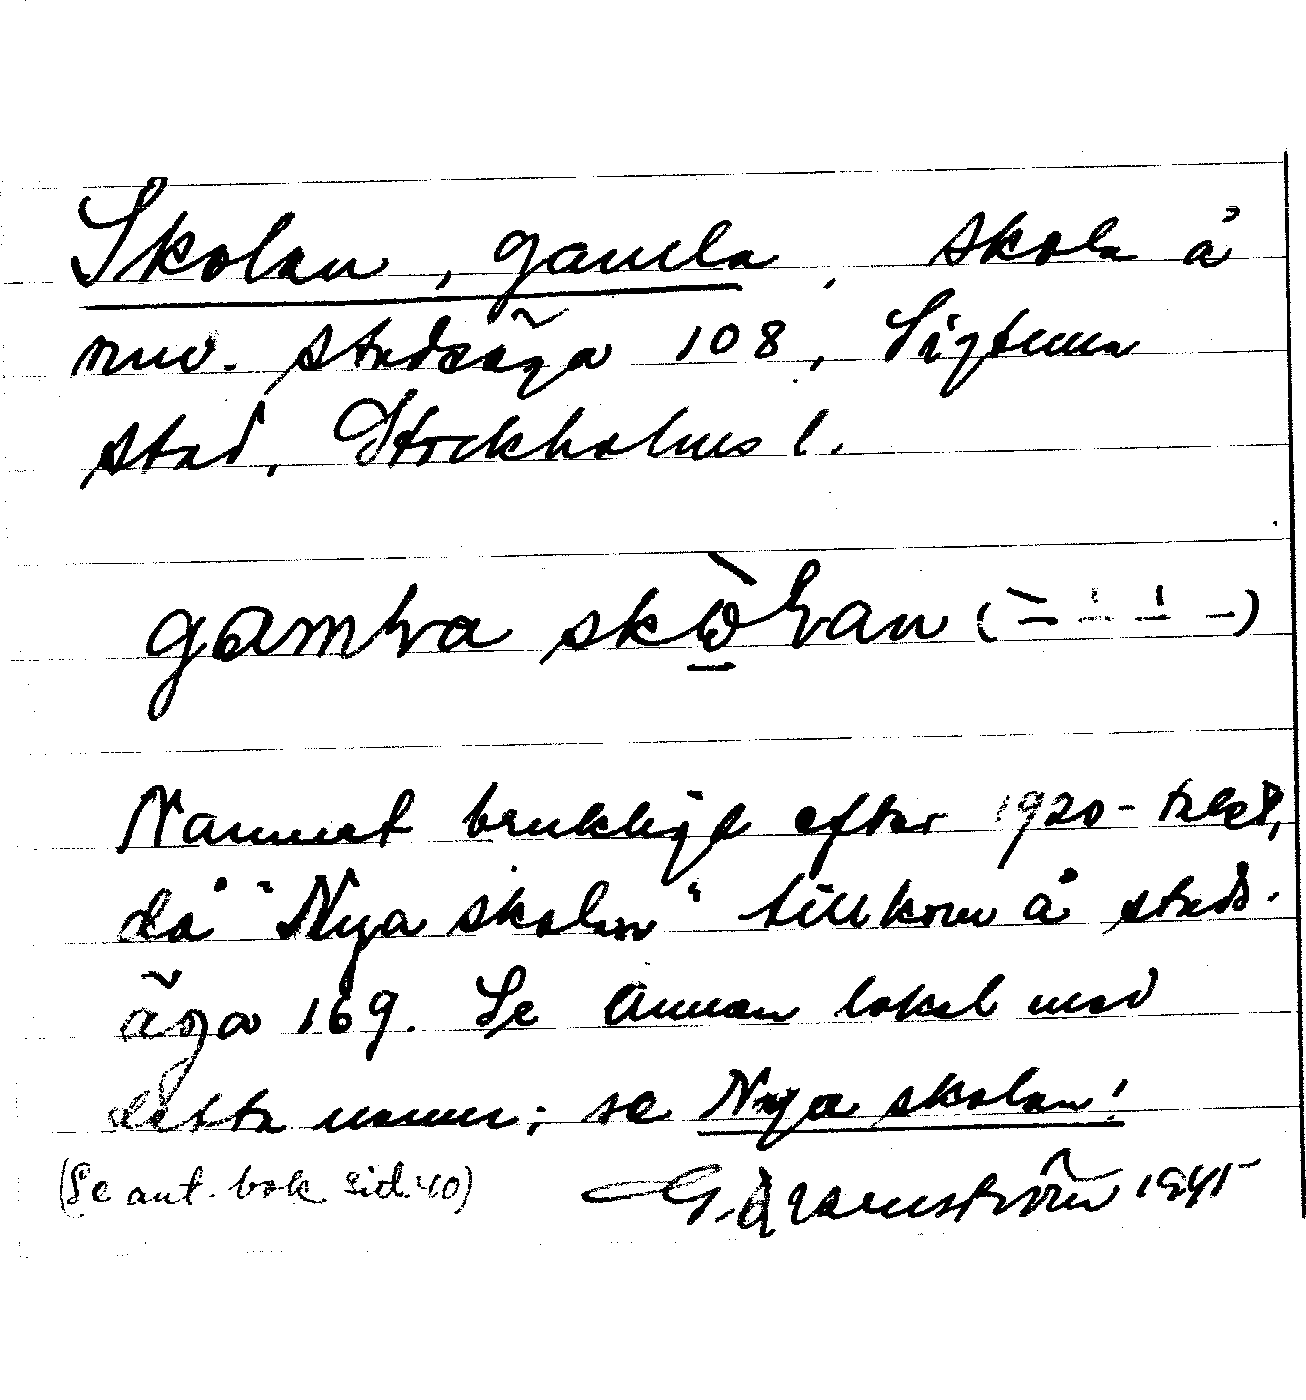 Skolan, gamla, skola å
nuv. stadsäga 108, Sigtuna
stad, Stockholms l.
gamla skòlan (
Namnet brukligt efter 1920-talet,
då "Nya skolan" tillkom å stads-
äga 169. Se Annan lokal med
detta namn; se Nya skolan!
(Se ant. bok sid. 40) 1945